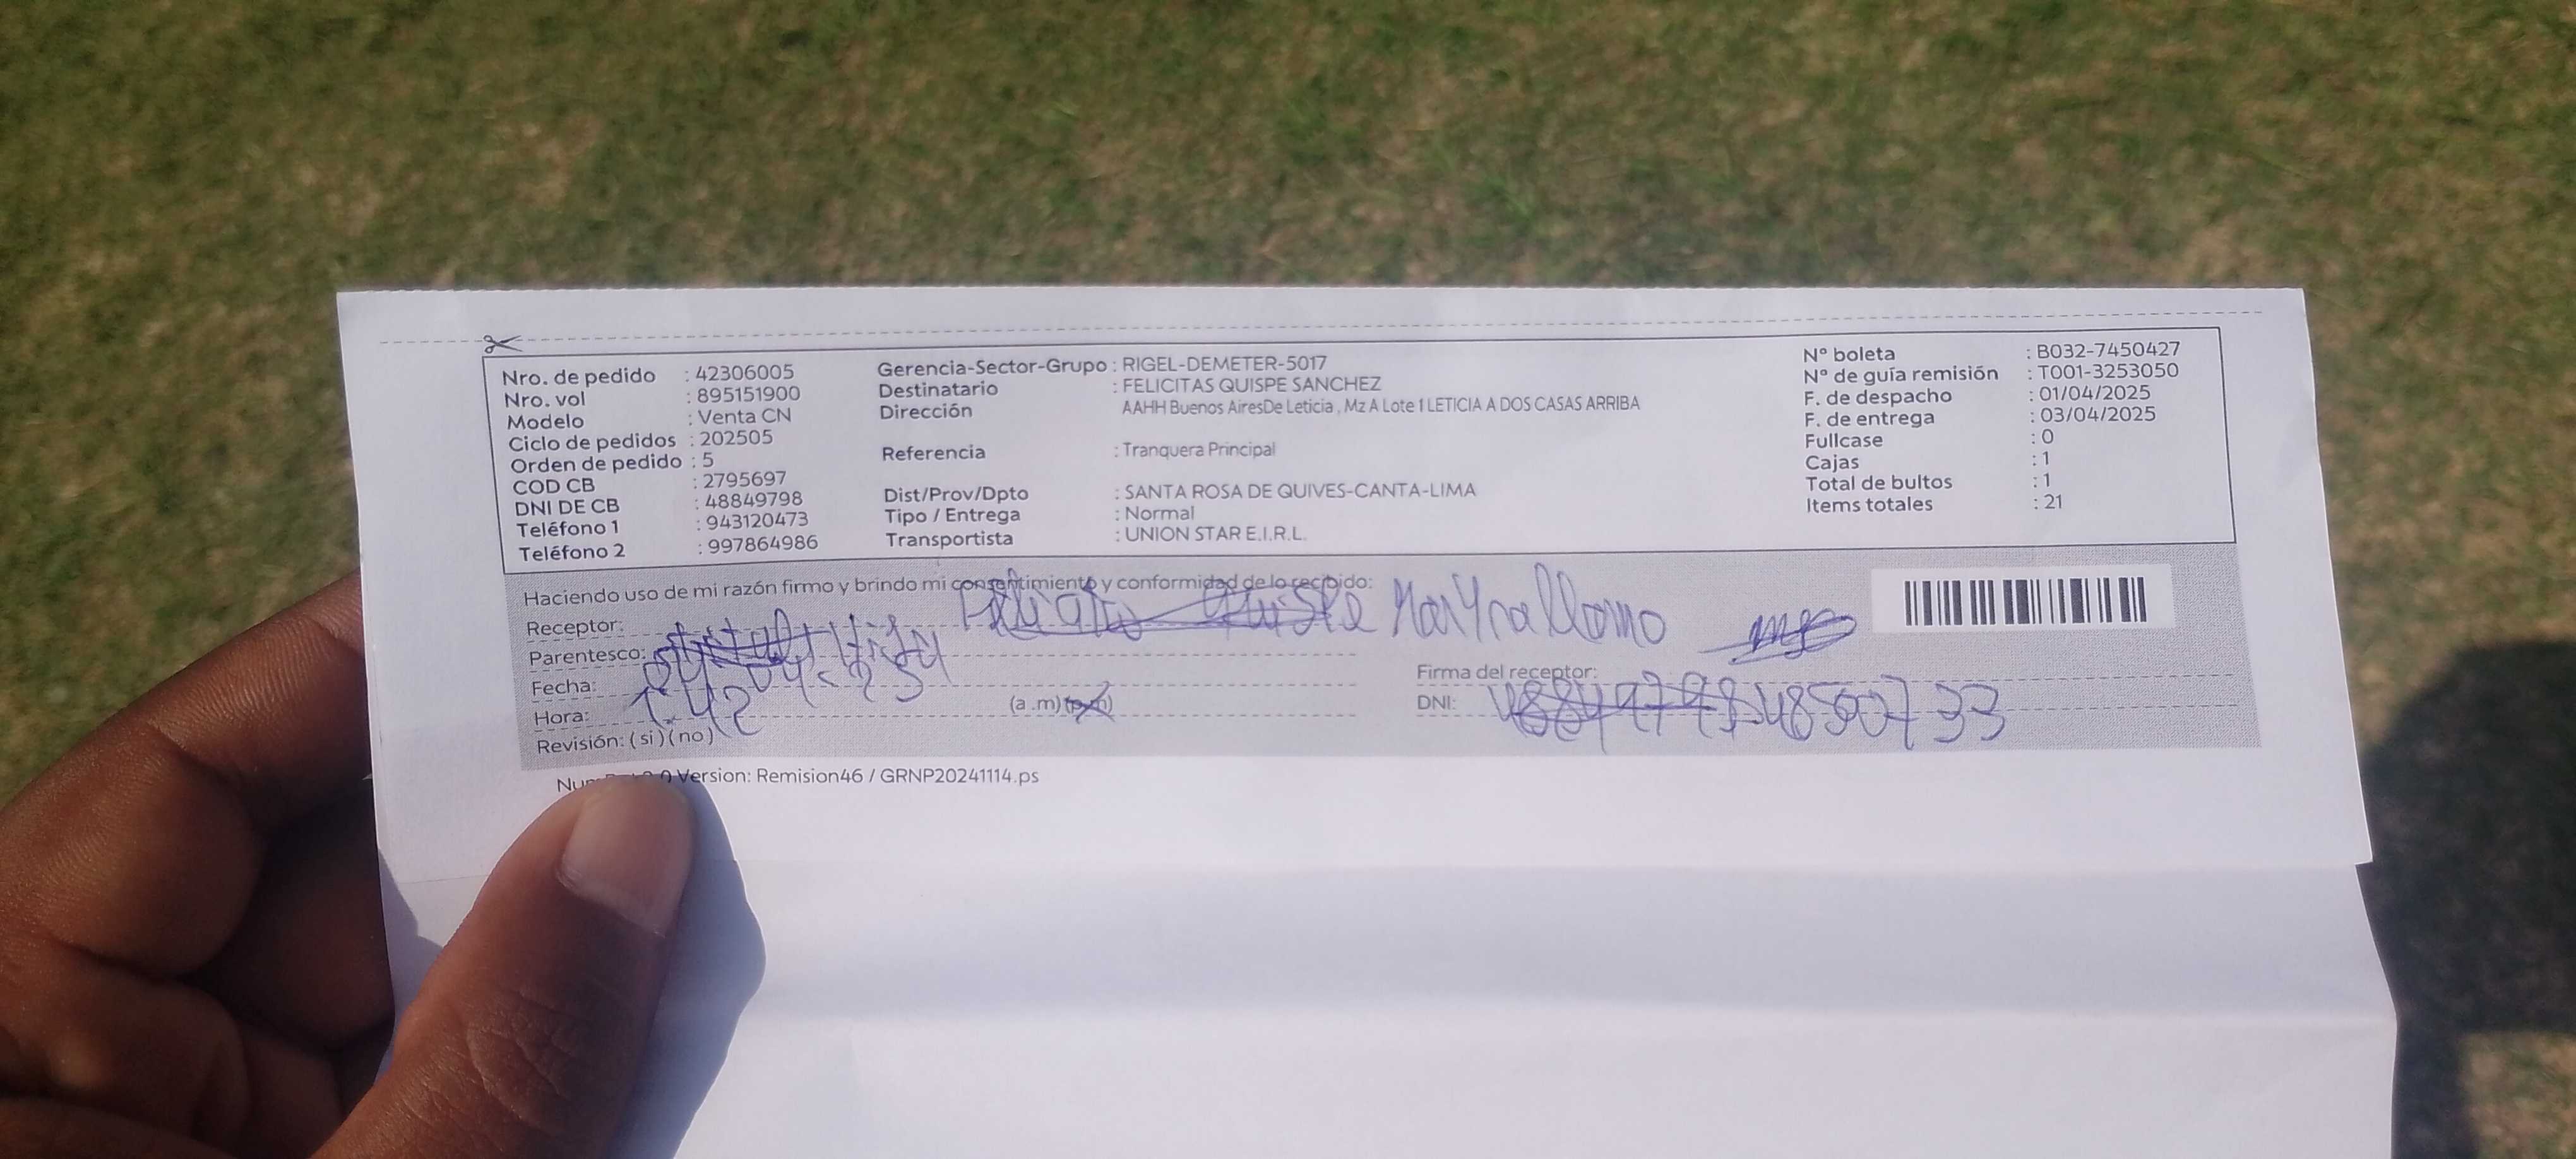 Nro. de pedido : 42306005
Nro. vol : 895151900
Modelo : Venta CN
Ciclo de pedidos : 202505
Orden de pedido : 5
COD CB : 2795697
DNI DE CB : 48849798
Teléfono 1 : 943120473
Teléfono 2 : 997864986
Gerencia-Sector-Grupo : RIGEL-DEMETER-5017
Destinatario : FELICITAS QUISPE SANCHEZ
Dirección AAHH Buenos AiresDe Leticia , Mz A Lote 1 LETICIA A DOS CASAS ARRIBA
Referencia : Tranquera Principal
Dist/Prov/Dpto : SANTA ROSA DE QUIVES-CANTA-LIMA
Tipo / Entrega : Normal
Transportista : UNION STAR E.I.R.L.
Nº boleta : B032-7450427
Nº de guía remisión : T001-3253050
F. de despacho : 01/04/2025
F. de entrega : 03/04/2025
Fullcase : 0
Cajas : 1
Total de bultos : 1
Items totales : 21
Haciendo uso de mi razón firmo y brindo mi consentimiento y conformidad de lo recibido:
Receptor: Quispe
Parentesco:
Fecha: 04-04-25
Hora: 1:42 (a.m) (p.m)
Revisión: (si) (no)
Firma del receptor:
DNI: 48849798
Version: Remision46 / GRNP20241114.ps